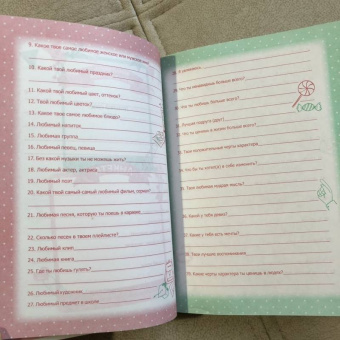 9. Какое твое самое любимое женское или мужское имя?
10. Какой твой любимый праздник?
11. Какой твой любимый цвет, оттенок?
12. Твой любимый цветок?
13. Какое твое самое любимое блюдо?
14. Любимый напиток
15. Любимая группа
16. Любимый певец, певица
17. Без какой музыки ты не можешь жить?
18. Любимый актер, актриса
19. Любимый поэт
20. Какой твой самый самый любимый фильм, сериал?
21. Любимая песня, которую ты поешь в караоке
22. Сколько песен в твоем плейлисте?
23. Любимый клип
24. Любимая книга
25. Где ты любишь гулять?
26. Любимый художник
27. Любимый предмет в школе
Что ты ненавидишь больше всего?
Что ты любишь больше всего?
Что ты ценишь в жизни больше всего?
Твои отрицательные черты характера
Что бы ты хотел(а) в себе изменить?
Твоя любимая мудрая мысль?
Какой у тебя девиз?
Какие у тебя есть мечты?
Твое лучшее воспоминание
Какие черты характера ты ценишь в людях?